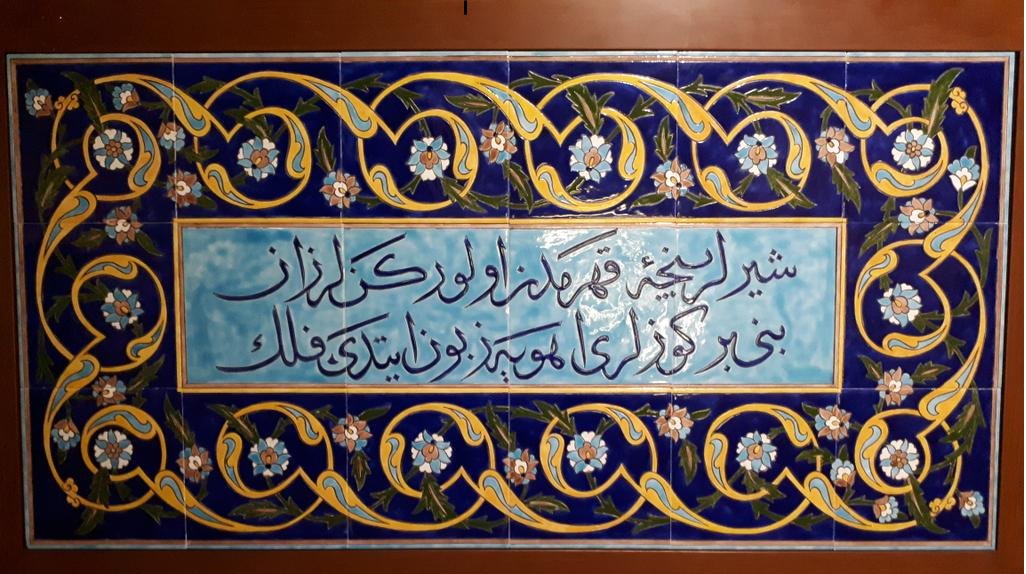 شیرلر پنجۀ قهرمدن اولوركن لرزان
بنی بر كوزلری اهویه زبون ایتدی فلك